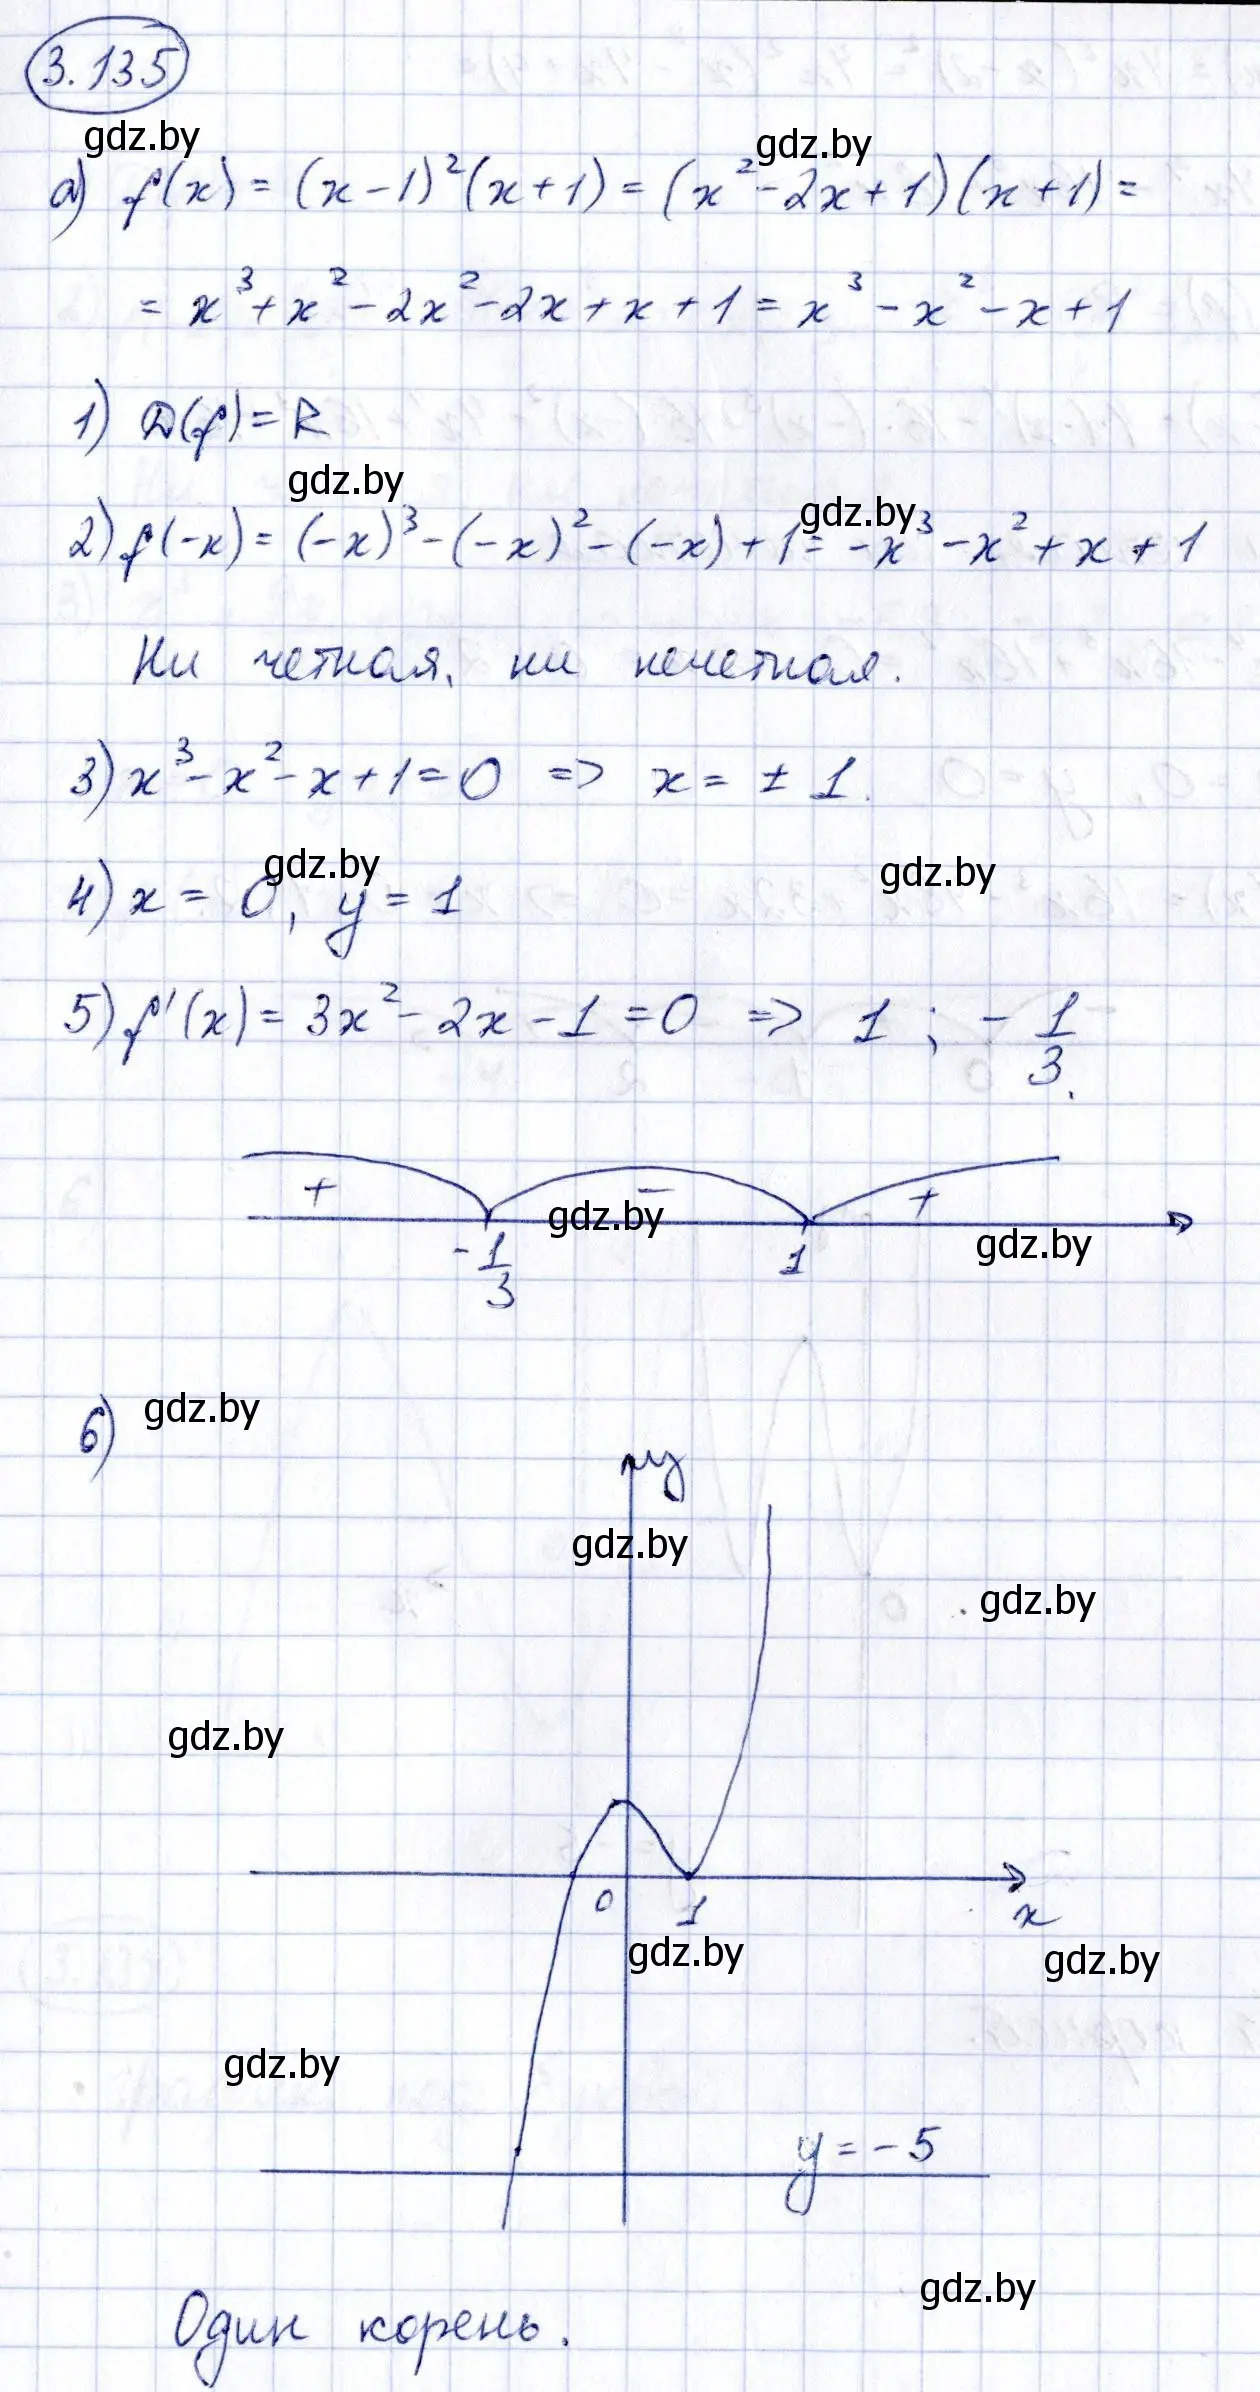 3.135
gdz.by
gdz.by
а) f(x) = (x-1)²(x+1) = (x²-2x+1)(x+1) =
= x³+x²-2x²-2x+x+1 = x³-x²-x+1
1) D(f) = R
gdz.by
gdz.by
2) f(-x) = (-x)³-(-x)²-(-x)+1 = -x³-x²+x+1
Ни четная, ни нечетная.
3) x³-x²-x+1=0 => x = ±1.
gdz.by
gdz.by
4) x = 0, y = 1
5) f'(x) = 3x²-2x-1=0 => 1; -1/3.
+ − +
gdz.by
gdz.by
-1/3 1
6)
gdz.by
y
gdz.by
gdz.by
gdz.by
0 1 x
gdz.by
gdz.by
gdz.by
y = -5
gdz.by
Один корень.